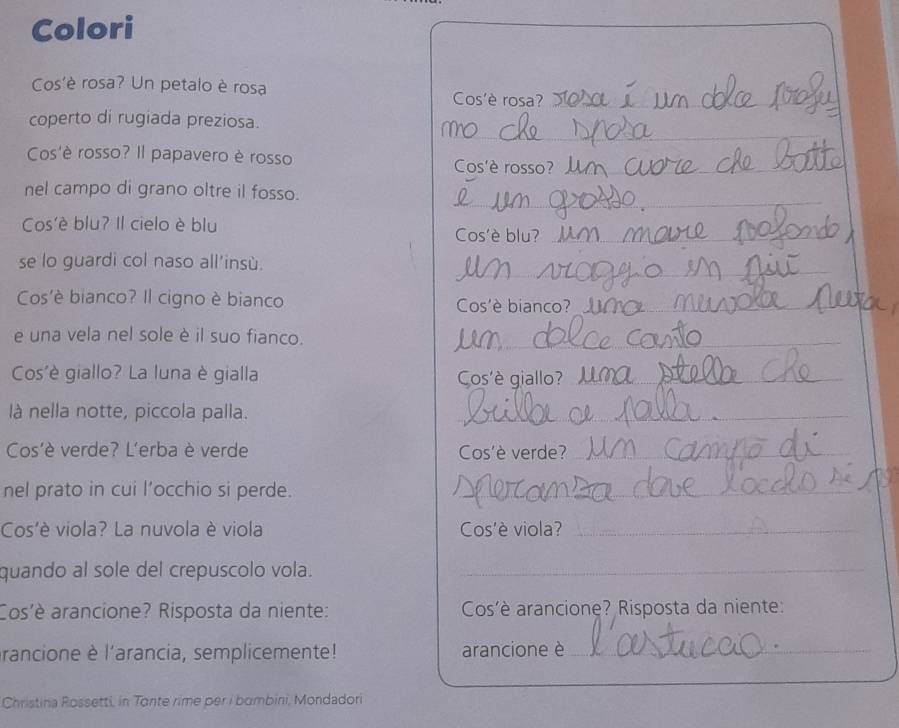 Colori
Cos'è rosa? Un petalo è rosa
coperto di rugiada preziosa.
Cos'è rosso? Il papavero è rosso
nel campo di grano oltre il fosso.
Cos'è blu? Il cielo è blu
se lo guardi col naso all'insù.
Cos'è bianco? Il cigno è bianco
e una vela nel sole è il suo fianco.
Cos'è giallo? La luna è gialla
là nella notte, piccola palla.
Cos'è verde? L'erba è verde
nel prato in cui l'occhio si perde.
Cos'è viola? La nuvola è viola
quando al sole del crepuscolo vola.
Cos'è arancione? Risposta da niente:
arancione è l'arancia, semplicemente!
Christina Rossetti, in Tante rime per i bambini, Mondadori
Cos'è rosa? rosa è un dolce profu
mo che sposa
Cos'è rosso? um cuore che batte
è um grosso.
Cos'è blu? um mare profondo,
um viaggio in più
Cos'è bianco? uma nuvola
um dolce canto
Cos'è giallo? uma stella che
brilla a palla.
Cos'è verde? um campo di
speranza dove locchio si
Cos'è viola?
Cos'è arancione? Risposta da niente:
arancione è l'astucao.